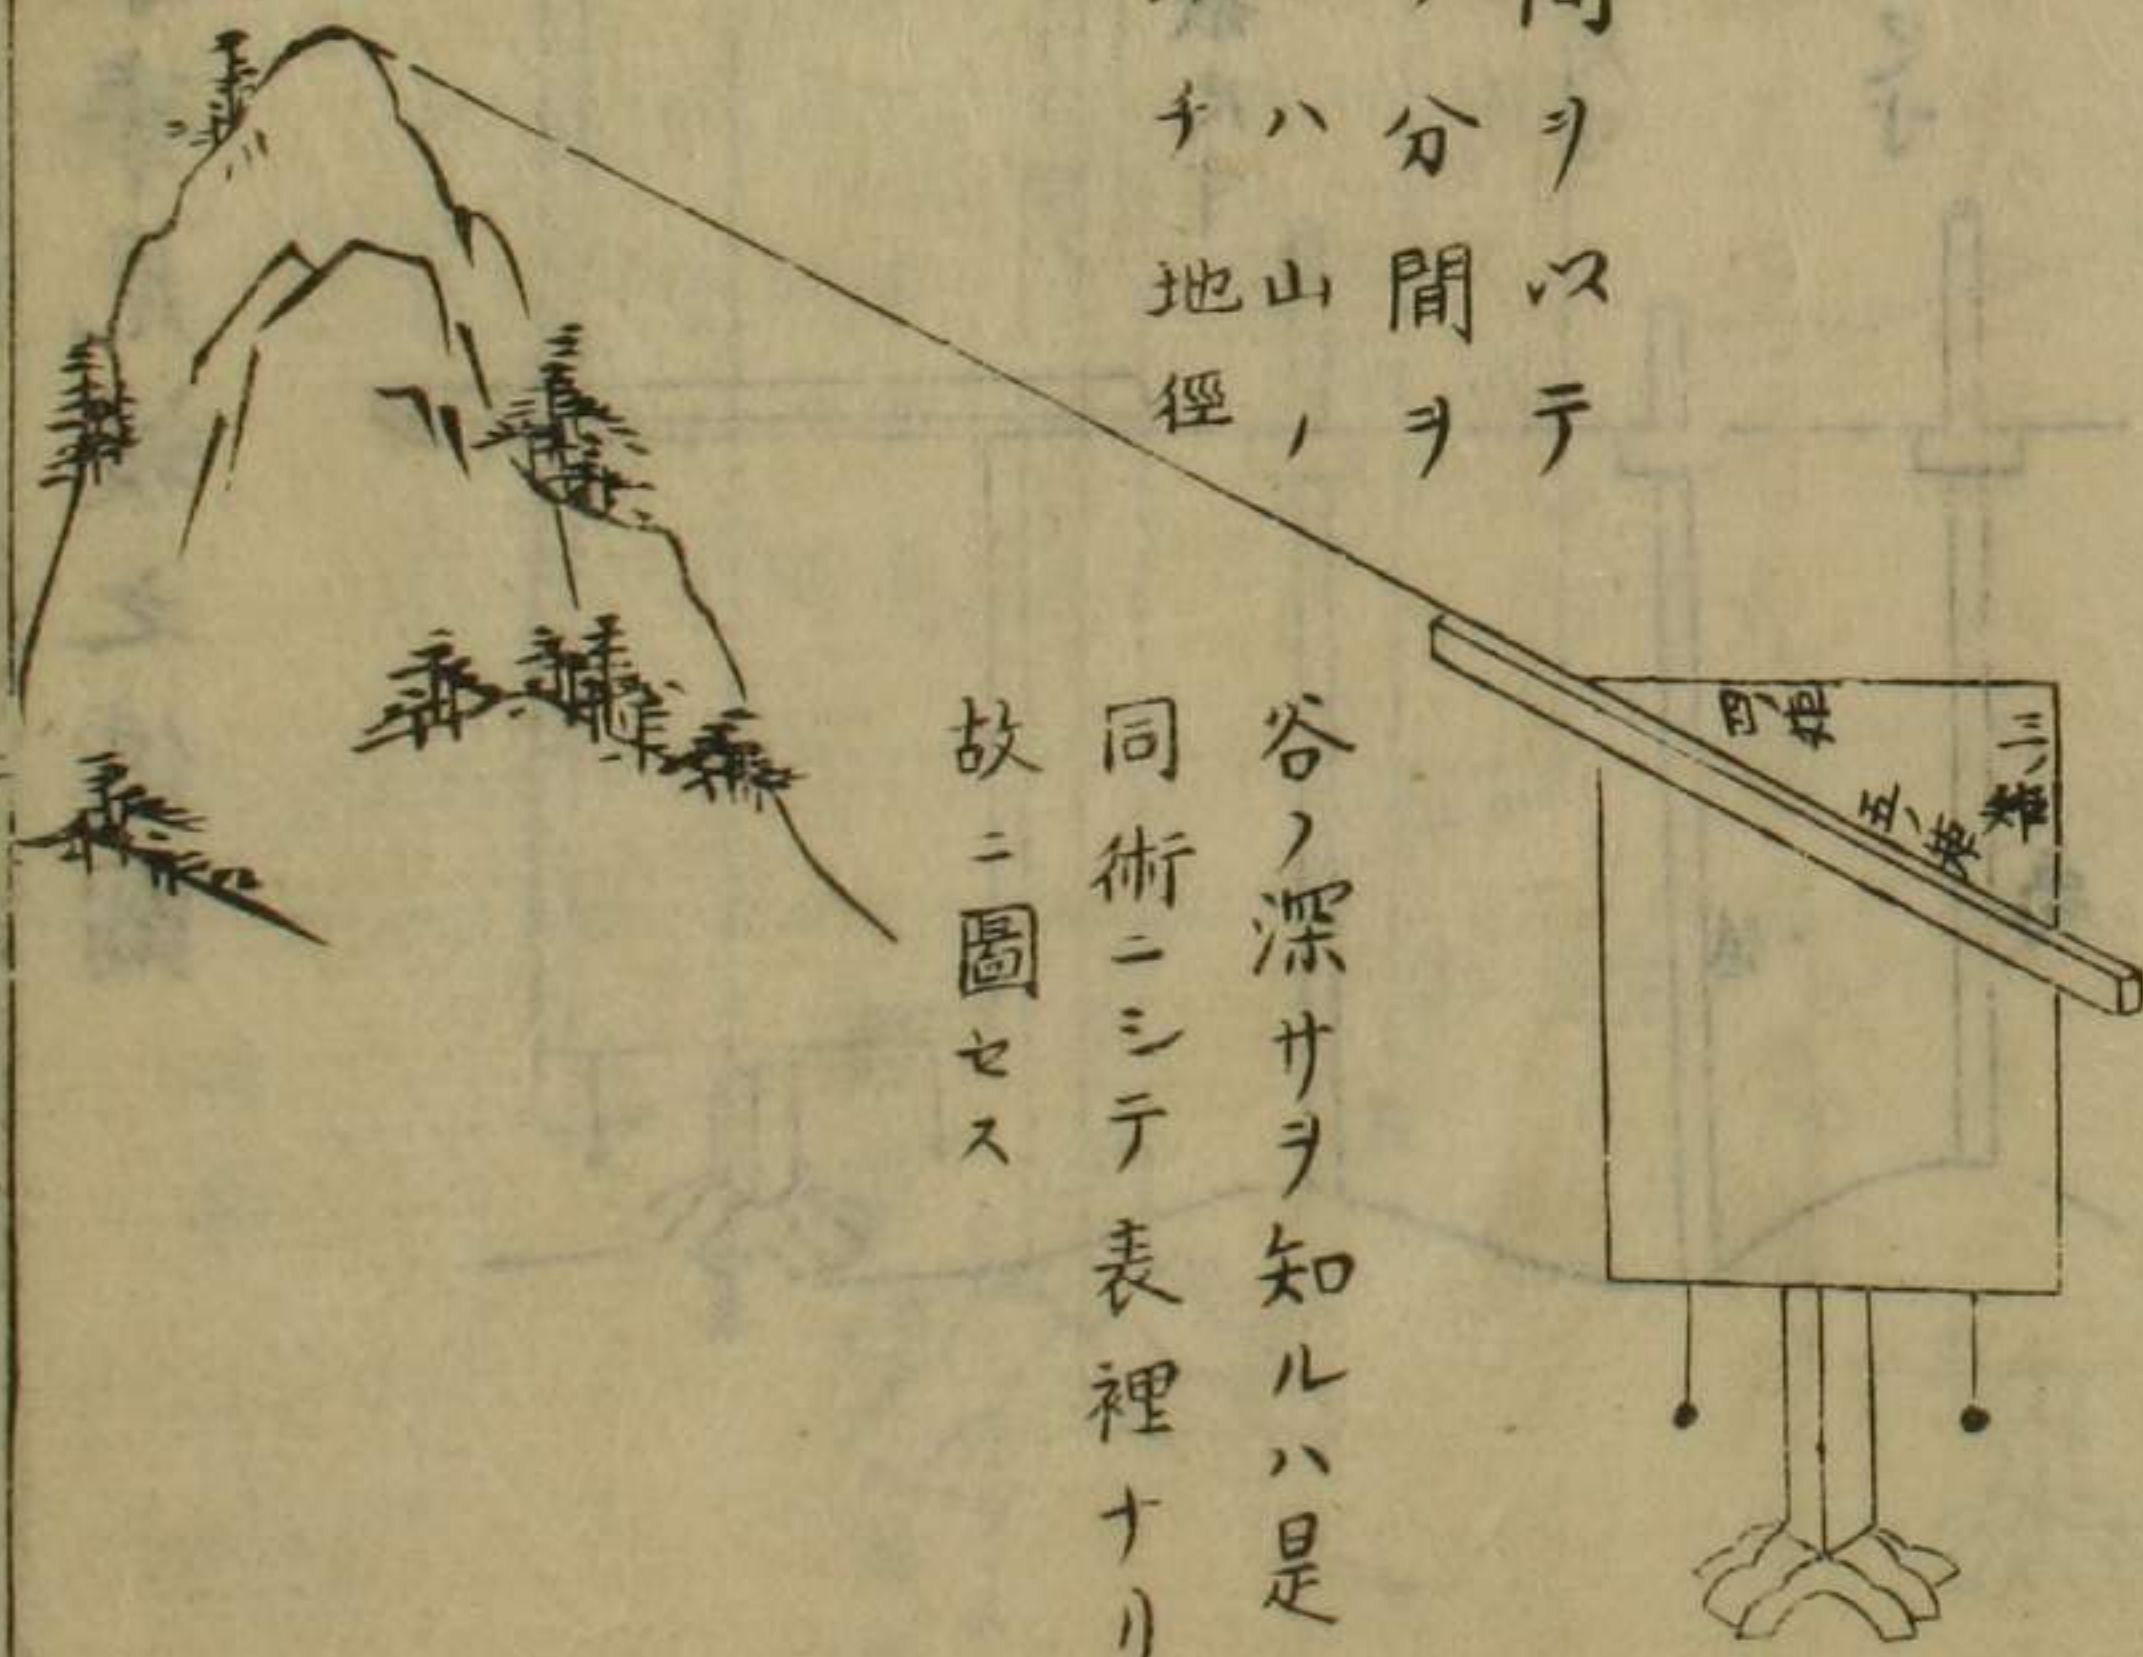 間ヲ以テ
分間ヲ
ハ山ノ
チ地徑
三ノ
四ノ矩
五ノ
谷ノ深サヲ知ルハ是
同術ニシテ表裡ナリ
故ニ圖セス